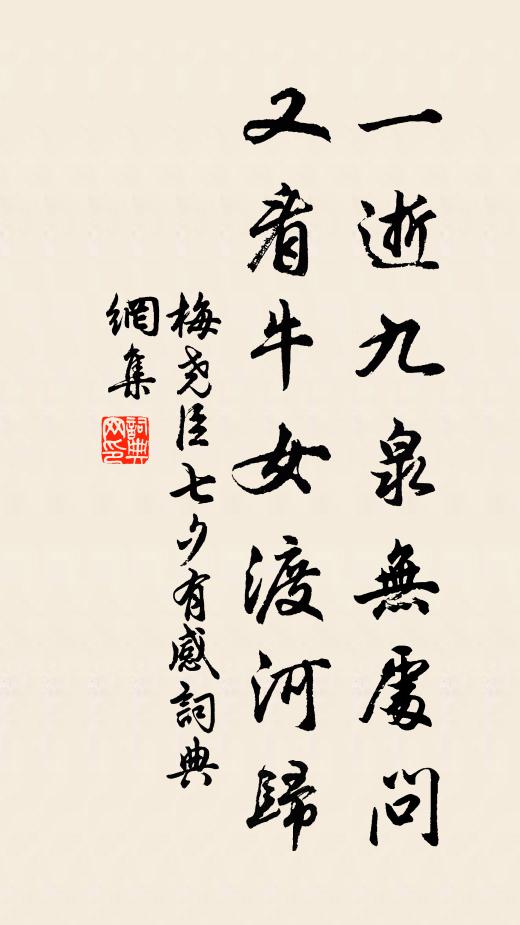 一逝九泉無處問
又看牛女渡河歸
梅堯臣七夕有感詞典
網集
詞典
网印